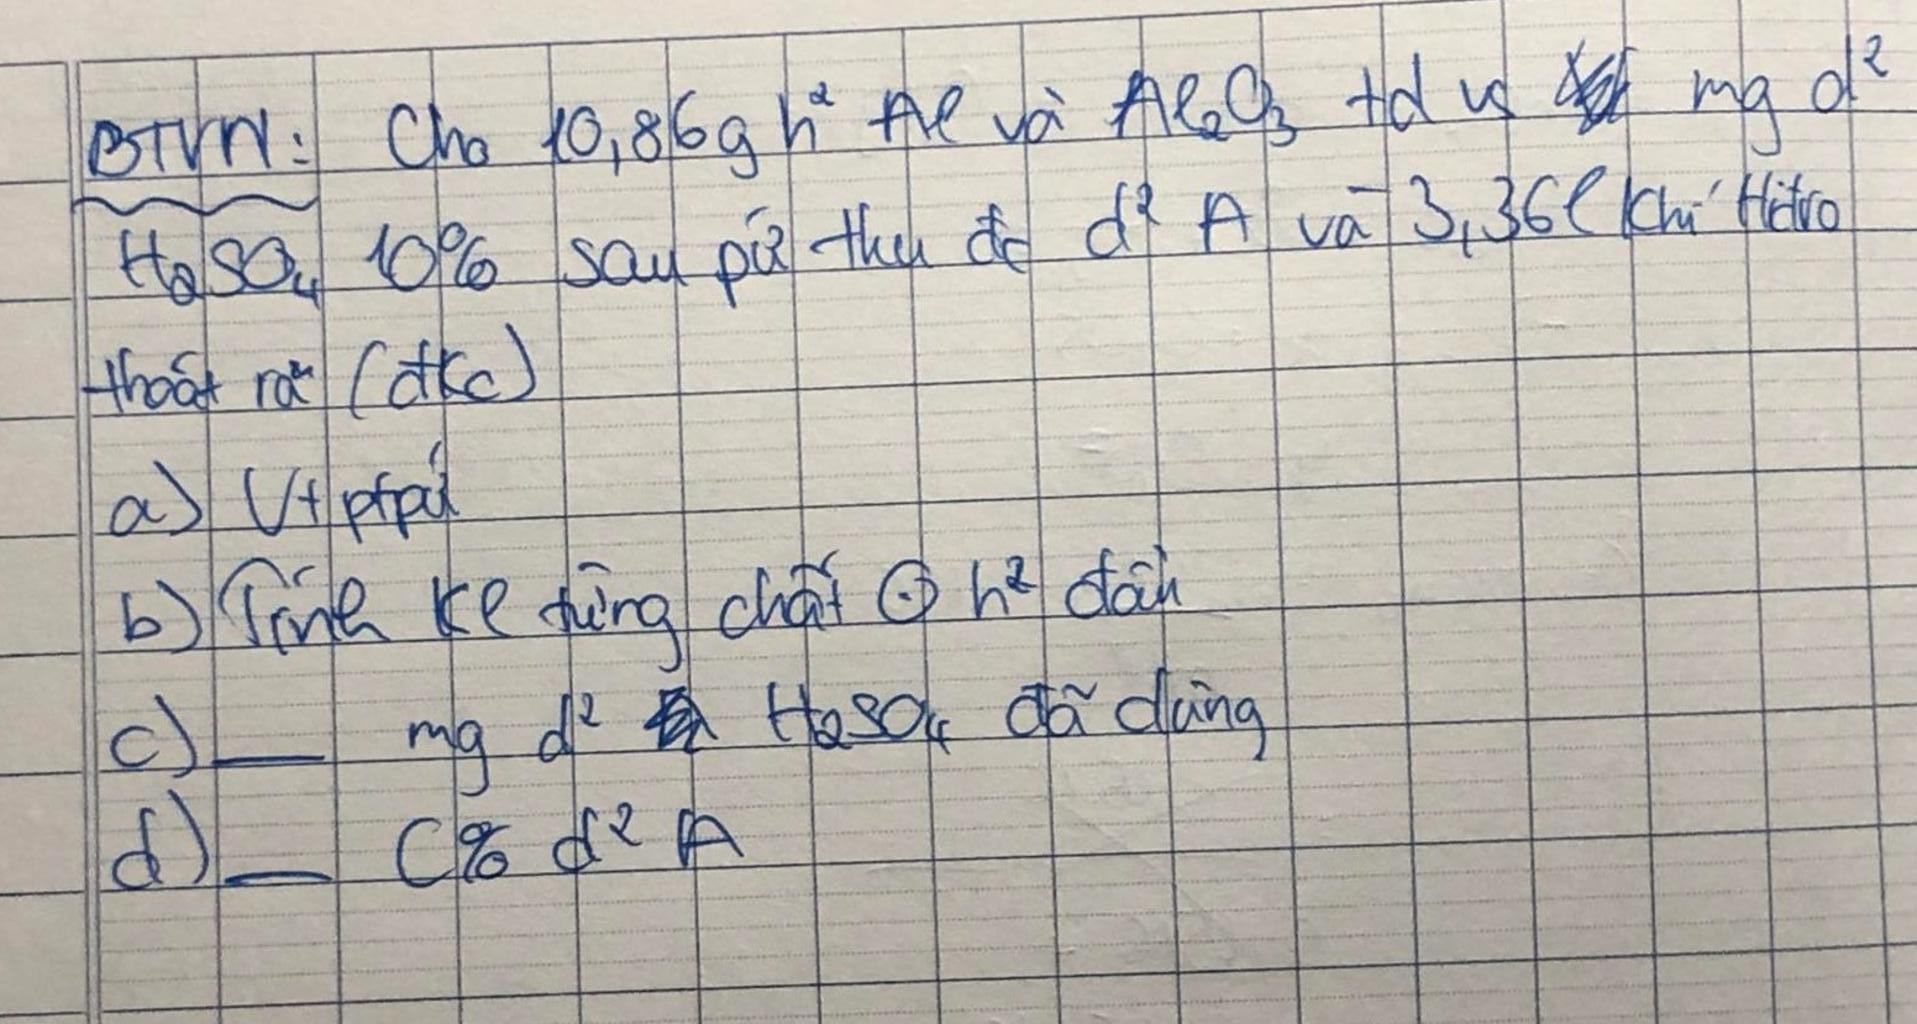 BTVN: Cho 10,86g h² Al và Al₂O₃ +d vs mg d²
H₂SO₄ 10% sau pứ thu đc d² A và 3,36l khí Hidro
thoát ra (đkc)
a) Vt ptpứ
b) Tính kl từng chất h² đầu
c) __ mg d² H₂SO₄ đã dùng
d) __ C% d² A